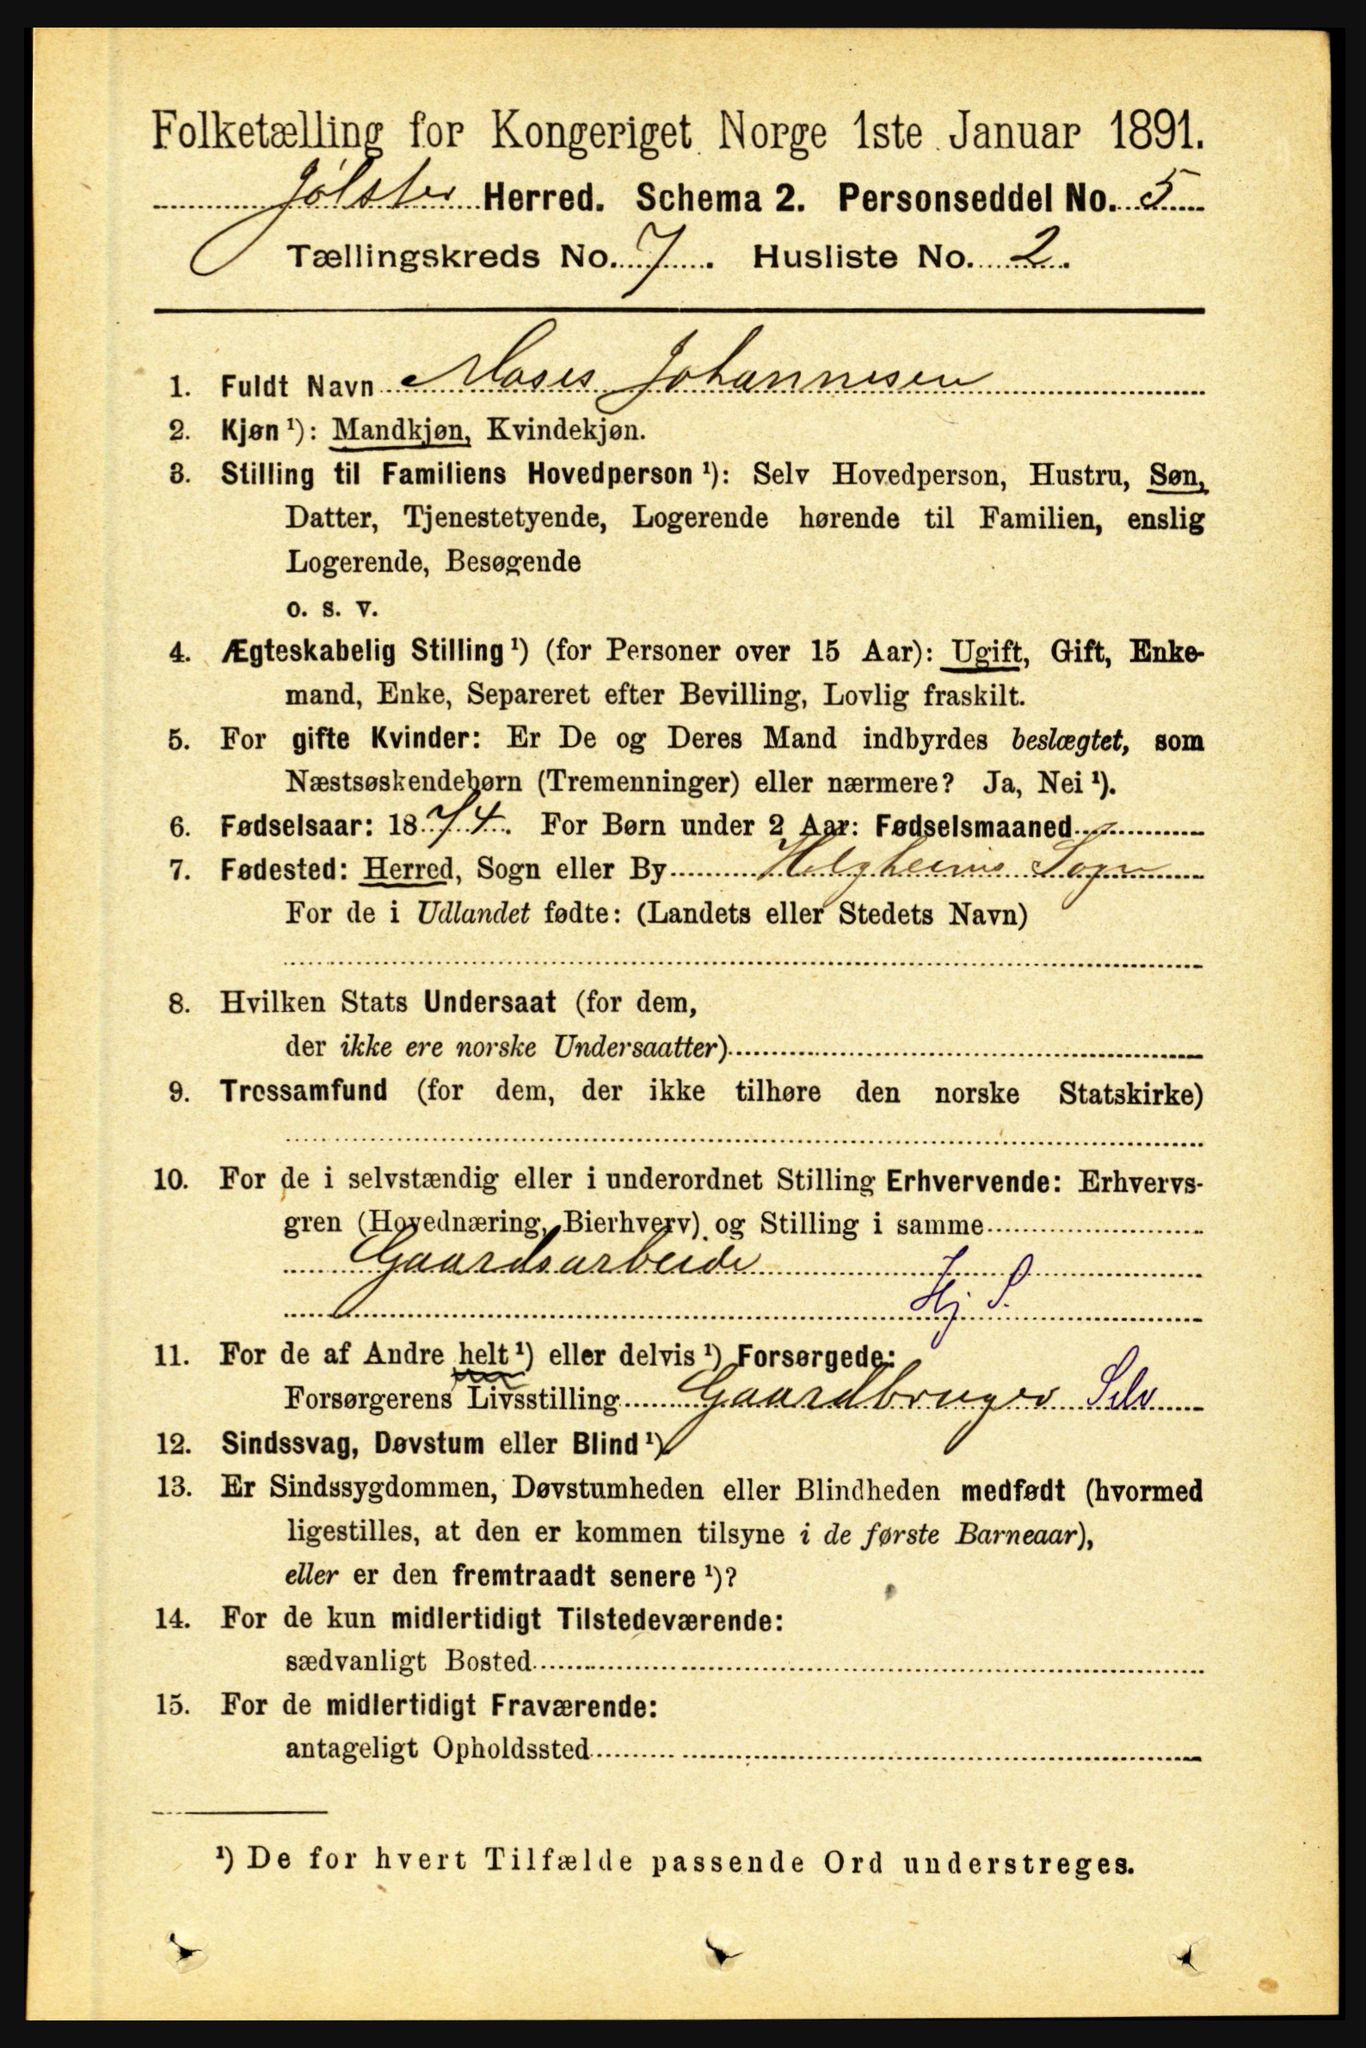 Folketælling for Kongeriget Norge 1ste Januar 1891.
Jølster Herred. Schema 2. Personseddel No. 5
Tællingskreds No. 7. Husliste No. 2.
1. Fuldt Navn Moses Johannesen
2. Kjøn ¹): Mandkjøn, Kvindekjøn.
3. Stilling til Familiens Hovedperson ¹): Selv Hovedperson, Hustru, Søn,
Datter, Tjenestetyende, Logerende hørende til Familien, enslig
Logerende, Besøgende
o. s. v.
4. Ægteskabelig Stilling ¹) (for Personer over 15 Aar): Ugift, Gift, Enke-
mand, Enke, Separeret efter Bevilling, Lovlig fraskilt.
5. For gifte Kvinder: Er De og Deres Mand indbyrdes beslægtet, som
Næstsøskendebørn (Tremenninger) eller nærmere? Ja, Nei ¹).
6. Fødselsaar: 1874. For Børn under 2 Aar: Fødselsmaaned
7. Fødested: Herred, Sogn eller By Helgheims Sogn
For de i Udlandet fødte: (Landets eller Stedets Navn)
8. Hvilken Stats Undersaat (for dem,
der ikke ere norske Undersaatter)
9. Trossamfund (for dem, der ikke tilhøre den norske Statskirke)
10. For de i selvstændig eller i underordnet Stilling Erhvervende: Erhvervs-
gren (Hovednæring, Bierhverv) og Stilling i samme
Gaardsarbeide
Hj S.
11. For de af Andre helt ¹) eller delvis ¹) Forsørgede:
Forsørgerens Livsstilling Gaardbruger Selv
12. Sindssvag, Døvstum eller Blind ¹)
13. Er Sindssygdommen, Døvstumheden eller Blindheden medfødt (hvormed
ligestilles, at den er kommen tilsyne i de første Barneaar),
eller er den fremtraadt senere ¹)?
14. For de kun midlertidigt Tilstedeværende:
sædvanligt Bosted
15. For de midlertidigt Fraværende:
antageligt Opholdssted
¹) De for hvert Tilfælde passende Ord understreges.